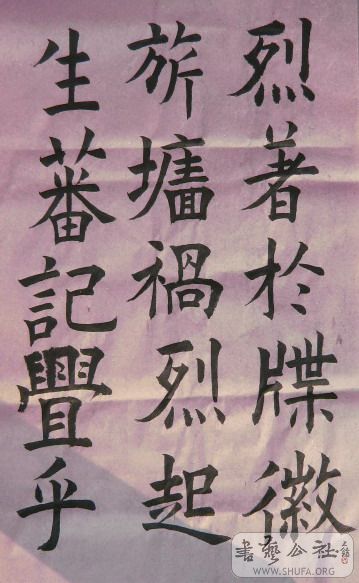 烈著於牒徽
旂墻禍烈起
生蕃記舋乎
書藝公社
WWW.SHUFA.ORG